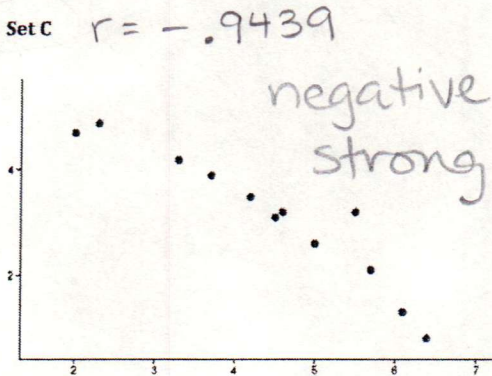 Set C r = -.9439
negative
strong
4
2
2 3 4 5 6 7